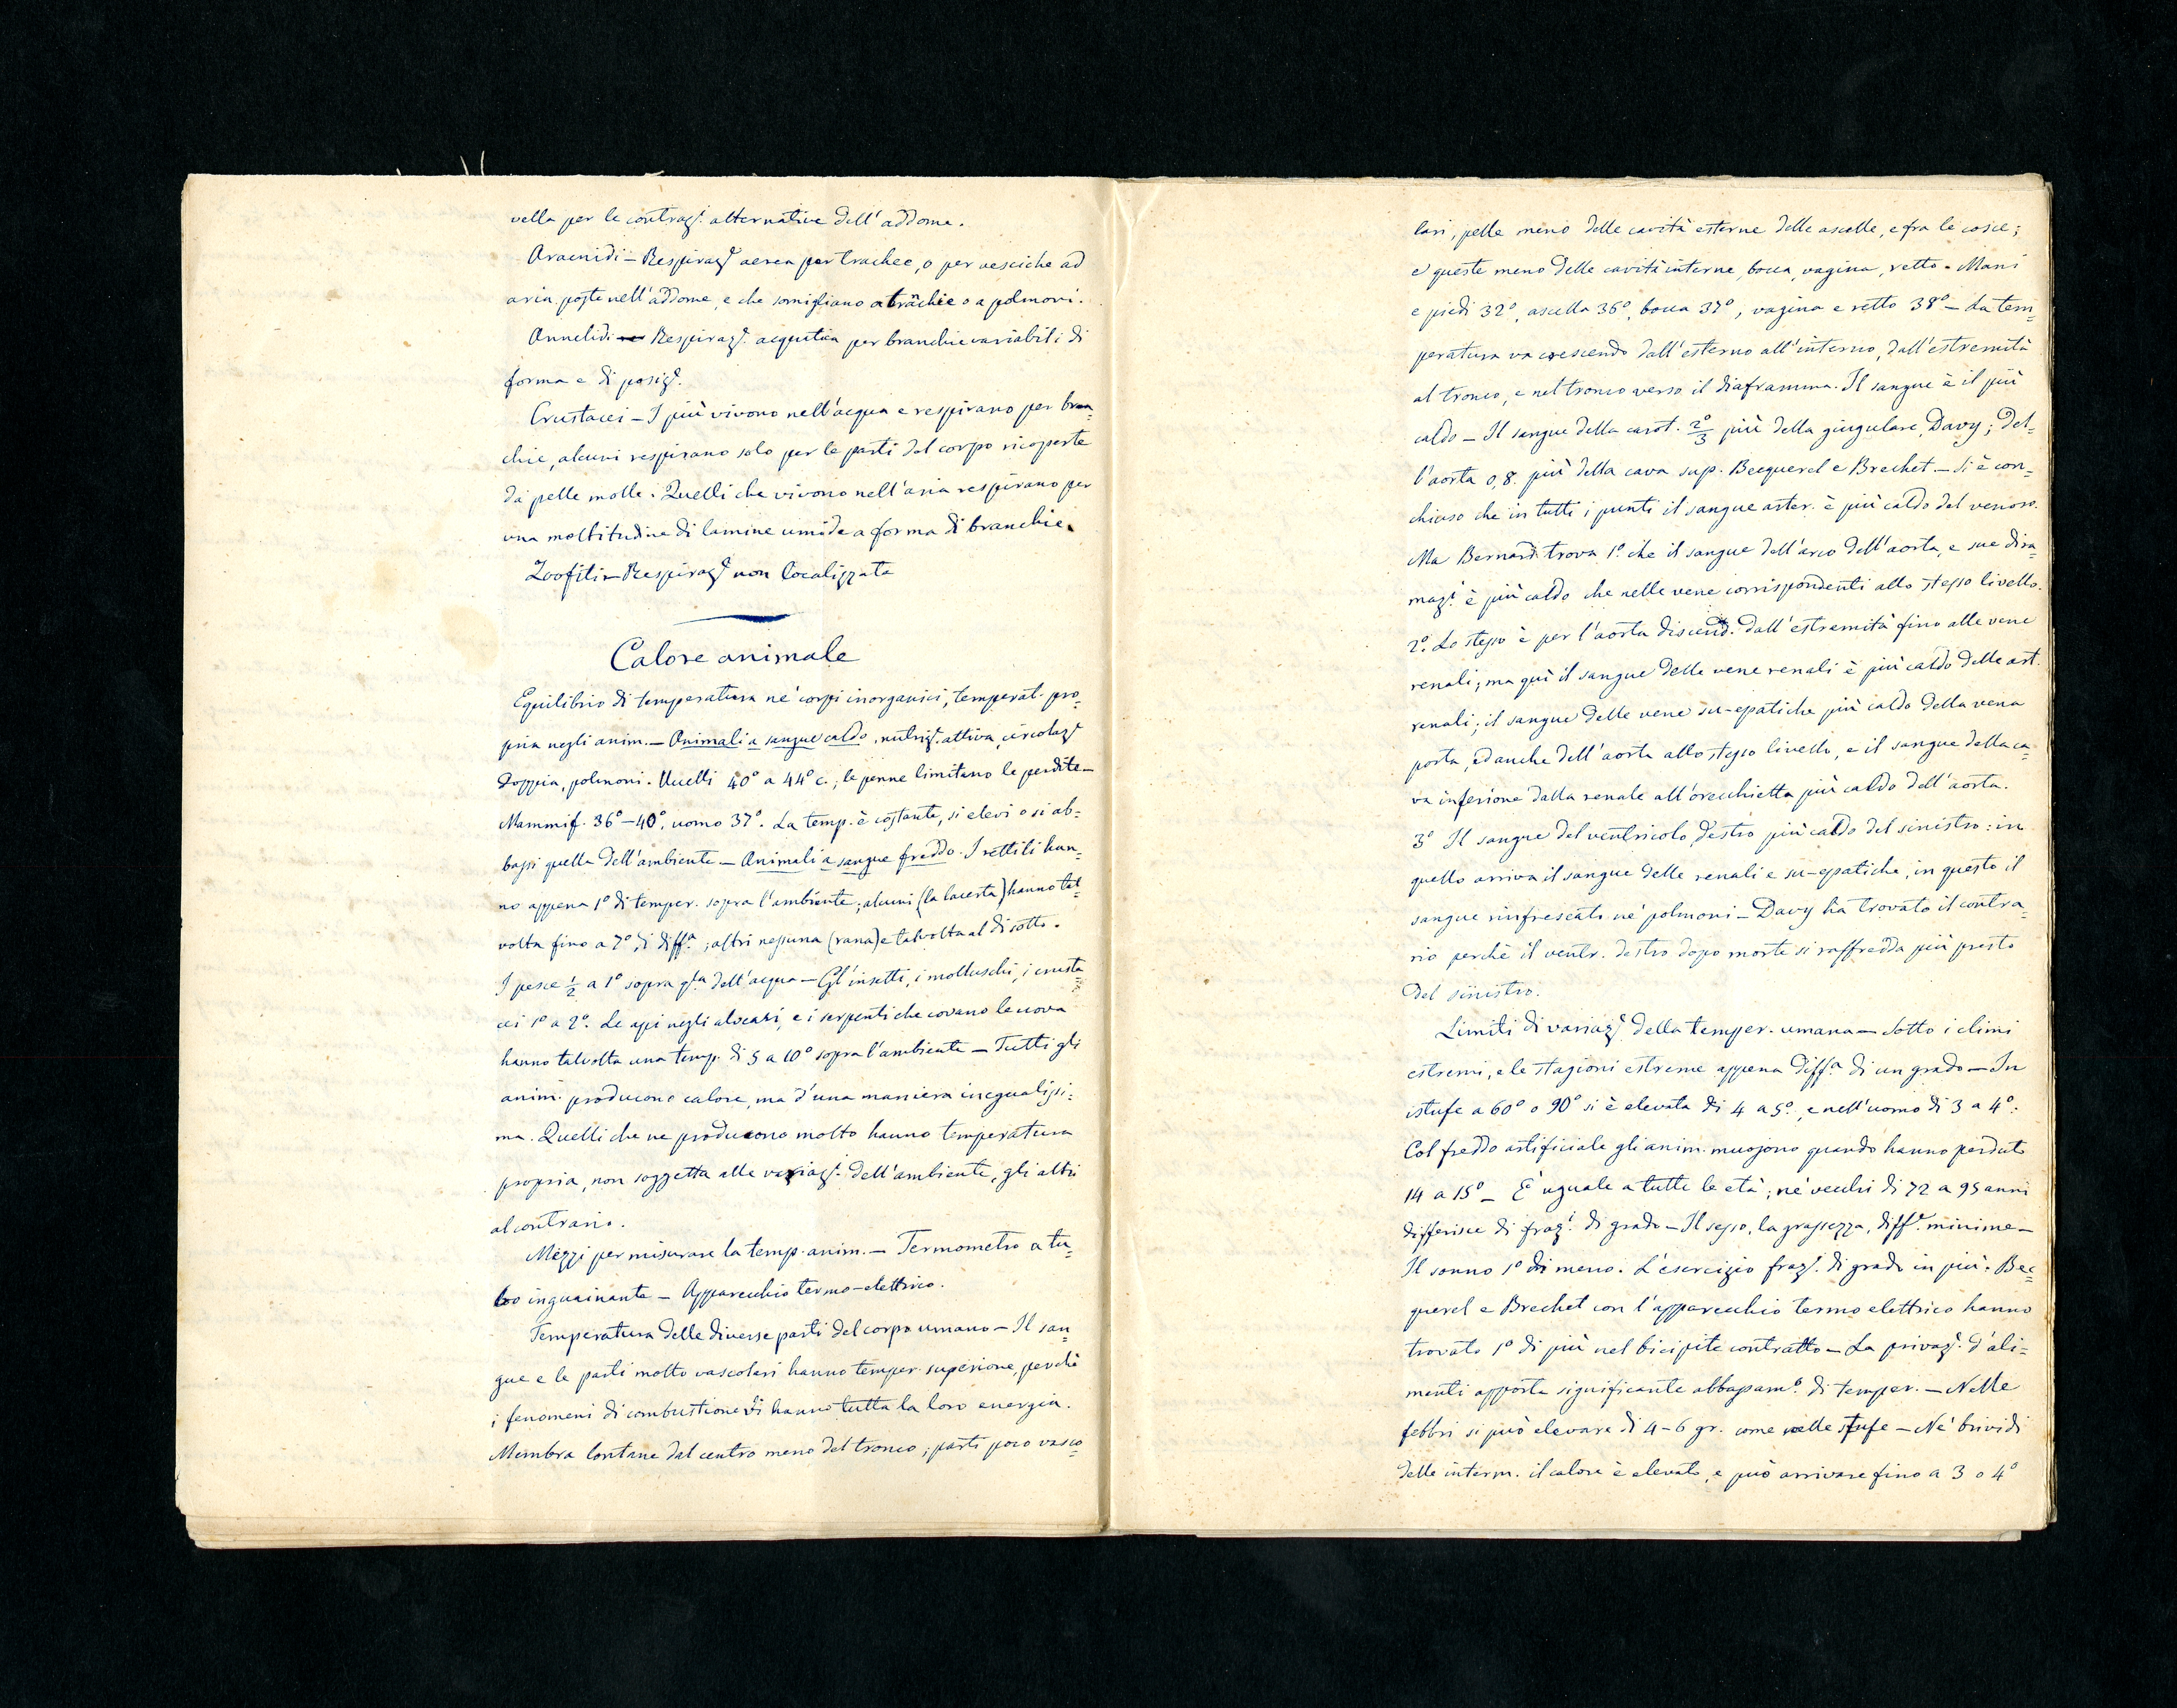 vella per le contrazi. alternative dell'addome.
Aracnidi — Respiraze aerea per trachee, o per vesciche ad
aria poste nell'addome, e che somigliano a trachie o a polmoni.
Annelidi — Respirazi. acquatica per branchie variabili di
forma e di posize.
Crustacei — I più vivono nell'acqua e respirano per bran=
chie, alcuni respirano solo per le parti del corpo ricoperte
da pelle molle. Quelli che vivono nell'aria respirano per
una moltitudine di lamine umide a forma di branchie.
Zoofiti — Respiraze non localizzata
Calore animale
Equilibrio di temperatura ne' corpi inorganici, temperat. pro=
pria negli anim. — Animali a sangue caldo, nutrize. attiva, circolaze
doppia, polmoni. Uccelli 40° a 44° c.; le penne limitano le perdite —
Mammif. 36°–40°, uomo 37°. La temp. è costante, si elevi o si ab=
bassi quella dell'ambiente — Animali a sangue freddo. I rettili han=
no appena 1° di temper. sopra l'ambiente; alcuni (la lacerta) hanno tal=
volta fino a 7° di diffa.; altri nessuna (rana) e talvolta al di sotto.
I pesce ½ a 1° sopra qla dell'acqua — Gl'insetti, i molluschi, i crusta=
cei 1° a 2°. Le api negli alveari, e i serpenti che covano le uova
hanno talvolta una temp. di 5 a 10° sopra l'ambiente — Tutti gli
anim. producono calore, ma d'una maniera inegualissi=
ma. Quelli che ne producono molto hanno temperatura
propria, non soggetta alle variazi. dell'ambiente, gli altri
al contrario.
Mezzi per misurare la temp. anim. — Termometro a tu=
bo inguainante — Apparecchio termo-elettrico.
Temperatura delle diverse parti del corpo umano — Il san=
gue e le parti molto vascolari hanno temper. superiore, perchè
i fenomeni di combustione vi hanno tutta la loro energia.
Membra lontane dal centro meno del tronco; parti poco vasco=
lari, pelle meno delle cavità esterne delle ascelle, e fra le cosce;
e queste meno delle cavità interne, bocca, vagina, retto. Mani
e piedi 32°, ascella 36°, bocca 37°, vagina e retto 38° — La tem=
peratura va crescendo dall'esterno all'interno, dall'estremità
al tronco, e nel tronco verso il diaframma. Il sangue è il più
caldo — Il sangue della carot. 2°/3 più della giugulare, Davy; del=
l'aorta 0,8. più della cava sup. Becquerel e Brechet. — Si è con=
chiuso che in tutti i punti il sangue arter. è più caldo del venoso.
Ma Bernard trova 1°. che il sangue dell'arco dell'aorta, e sue dira=
mazi. è più caldo che nelle vene corrispondenti allo stesso livello.
2°. Lo stesso è per l'aorta discend. dall'estremità fino alle vene
renali; ma quì il sangue delle vene renali è più caldo delle art.
renali; il sangue delle vene su-epatiche più caldo della vena
porta, ed anche dell'aorta allo stesso livello, e il sangue della ca=
va inferiore dalla renale all'orecchietta più caldo dell'aorta.
3° Il sangue del ventricolo destro più caldo del sinistro: in
quello arriva il sangue delle renali e su-epatiche, in questo il
sangue rinfrescato ne' polmoni — Davy ha trovato il contra=
rio perchè il ventr. destro dopo morte si raffredda più presto
del sinistro.
Limiti di variaze. della temper. umana — Sotto i climi
estremi, e le stagioni estreme appena diffa. di un grado — In
istufe a 60° o 90° si è elevata di 4 a 5°., e nell'uomo di 3 a 4°.
Col freddo artificiale gli anim. muojono quando hanno perduto
14 a 15° — È uguale a tutte le età; ne' vecchi di 72 a 95 anni
differisce di frazi. di grado — Il sesso, la grassezza, diffe. minime —
Il sonno 1° di meno. L'esercizio frazi. di grado in più. Bec=
querel e Brechet con l'apparecchio termo elettrico hanno
trovato 1° di più nel bicipite contratto — La privaze. d'ali=
menti apporta significante abbassamo. di temper. — Nelle
febbri si può elevare di 4–6 gr. come nelle stufe — Ne' brividi
delle interm. il calore è elevato, e può arrivare fino a 3 o 4°